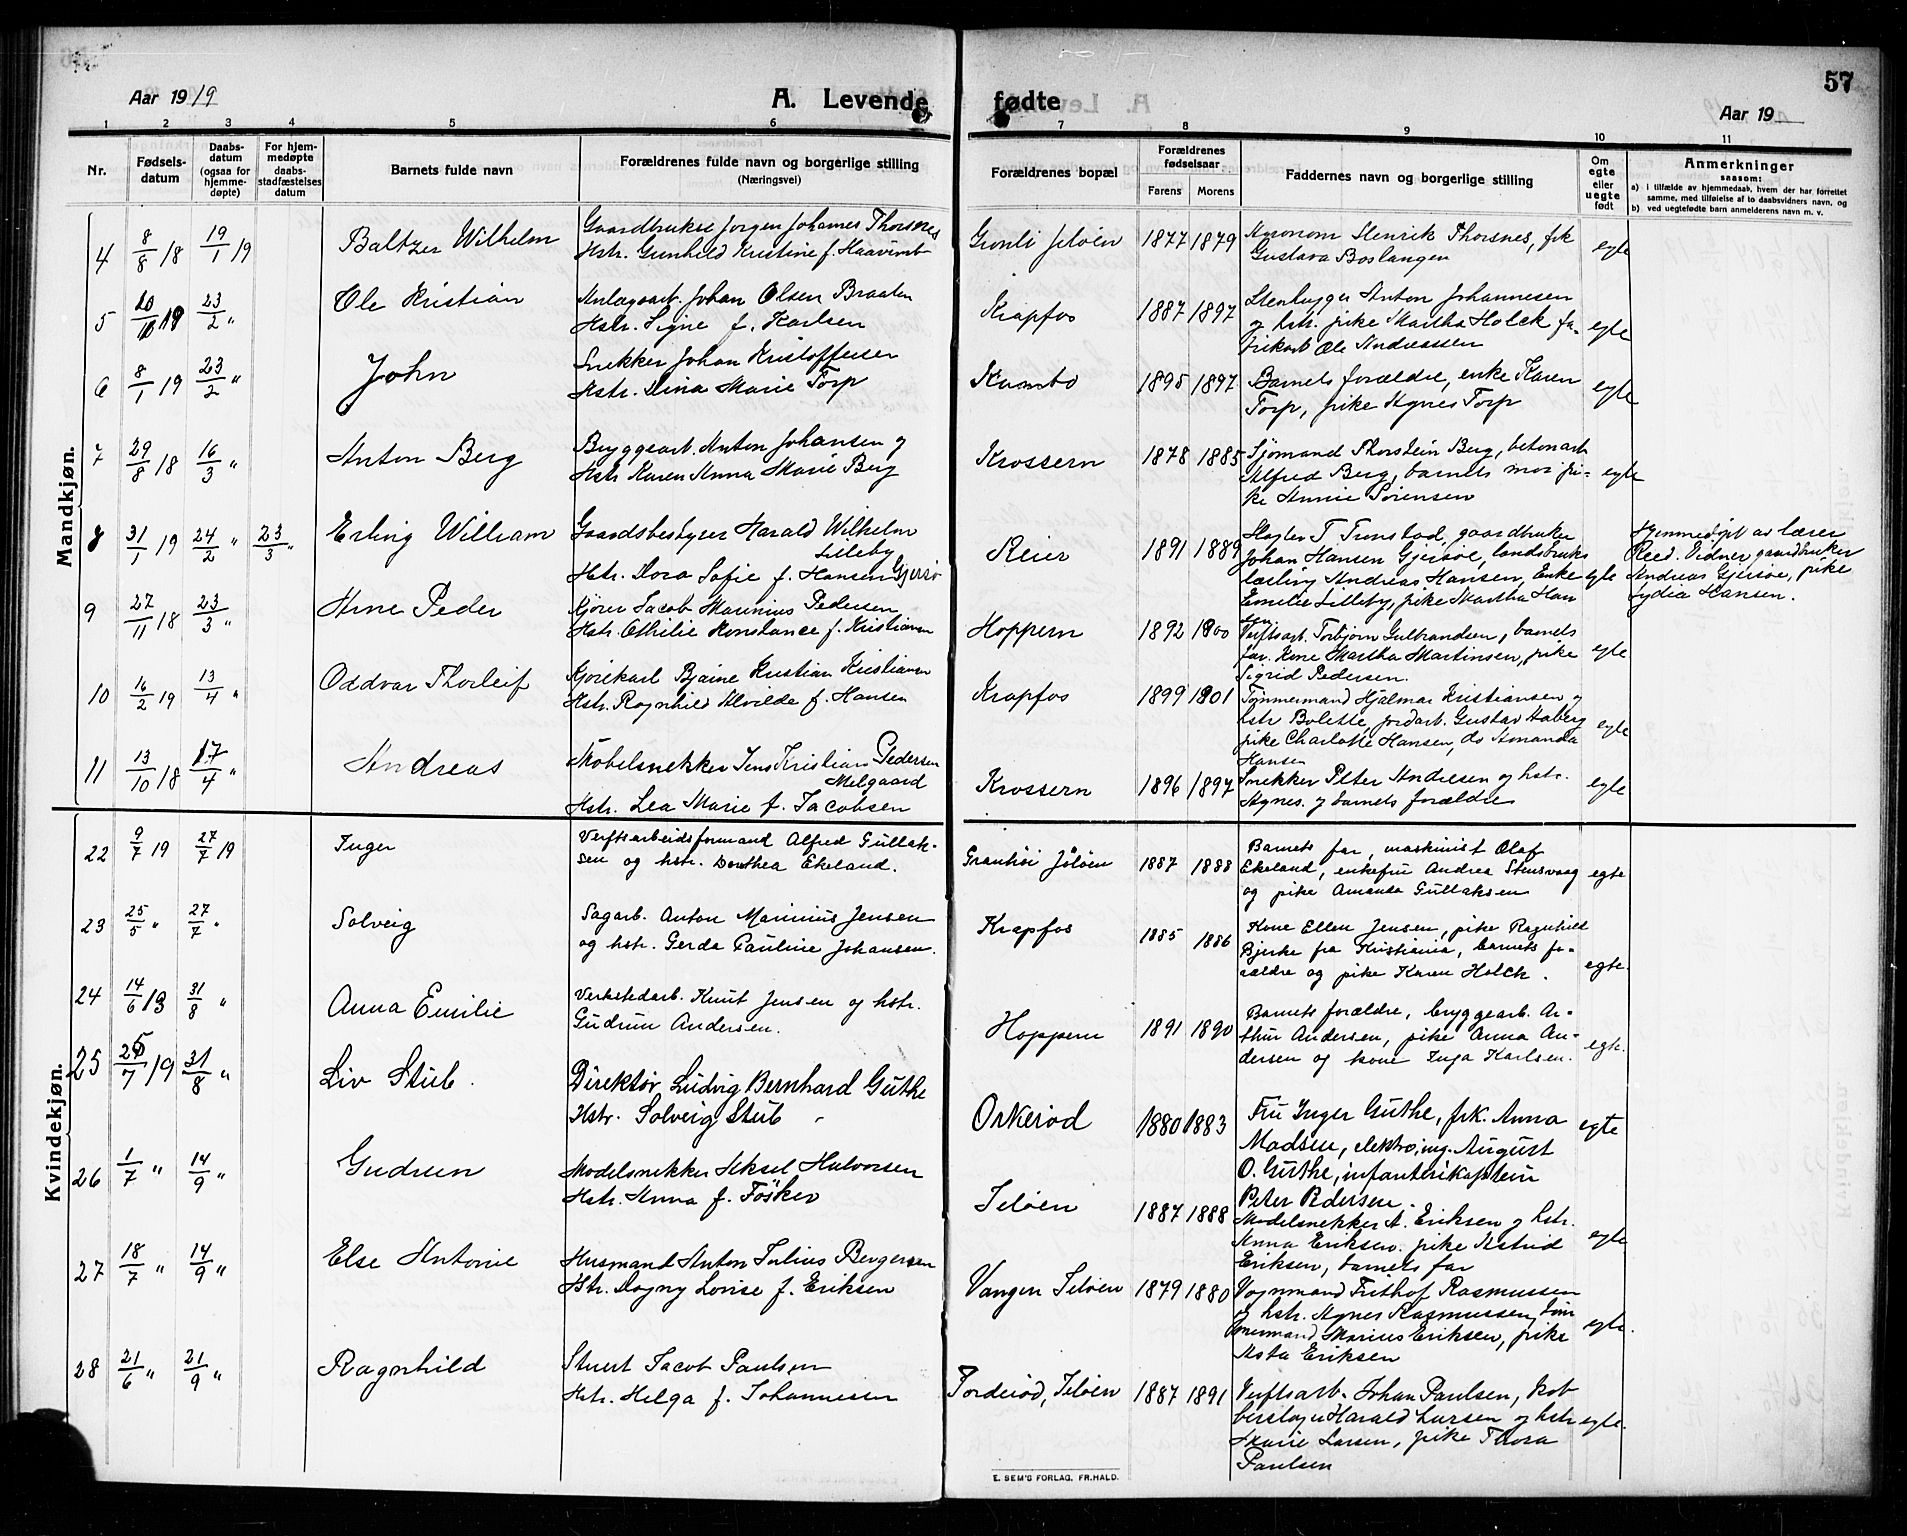 Aar 1919
A. Levende
fødte
57
Aar 19
1 2 3 4 5 6 7 8 9 10 11
Nr.
Fødsels-
datum
Daabs-
datum
(ogsaa for
hjemme-
døpte)
For hjem-
medøpte
daabs-
stadfæstelses
datum
Barnets fulde navn
Forældrenes fulde navn og borgerlige stilling
(Næringsvei)
Forældrenes bopæl
Forældrenes
fødselsaar
Farens Morens
Faddernes navn og borgerlige stilling
Om
egte
eller
uegte
født
Anmerkninger
saasom:
a) i tilfælde av hjemmedaab, hvem der har forrettet
samme, med tilføielse af to daabsvidners navn, og
b) ved uegtefødte barn anmelderens navn m. v.
Mandkjøn.
4 8/8 18 19/1 19 Baltzer Wilhelm
Gaardbruker Jørgen Johannes Thorsnes
Hstr. Gunhild Kristine f. Haavimb
Grønli Jeløen 1877 1879
Agronom Henrik Thorsnes, frk
Gustava Boslangen
egte
5 10/18 23/2 " Ole Kristian
Anlægsarb. Johan Olsen Braaten
Hstr. Signe f. Karlsen
Krapfos 1887 1897
Stenhugger Anton Johannesen
og hstr. pike Martha Holck fa-
brikarb Ole Andreassen
egte
6 8/1 19 23/2 " John
Snekker Johan Kristoffersen
Hstr. Dina Marie Torp
Kambo 1895 1897
Barnets forældre, enke Karen
Torp, pike Agnes Torp
egte
7 29/8 18 16/3 " Anton Berg
Bryggearb. Anton Johansen og
Hstr Karen Anna Marie Berg
Krossern 1878 1885
Sjømand Thorstein Berg, betonarb
Alfred Berg, barnets mor pi-
ke Annie Sørensen
egte
8 31/1 19 24/2 " 23/3 " Erling William
Gaardsbestyrer Harald Wilhelm
Lilleby
Hstr. Dora Sofie f. Hansen Gjersø
Reier 1891 1889
T Tronstad, gaardbruker
Johan Hansen Gjersøe, landbruks
lærling Andreas Hansen, Enke
Emelie Lilleby, pike Martha Han
sen
egte
Hjemmedøpt av lærer
Reed. Vidner, gaardbruker
Andreas Gjersøe, pike
Lydia Hansen.
9 27/11 18 23/3 " Arne Peder
Kjører Jacob Marinius Pedersen
Hstr. Othilie Konstance f. Kristiansen
Hoppern 1892 1900
Verftsarb. Torbjørn Gulbrandsen, barnets
far. Kone Martha Martinsen, pike
Sigrid Pedersen.
egte
10 16/2 19 13/4 " Oddvar Thorleif
Kjørekarl Bjarne Kristian Kristiansen
Hstr. Ragnhild Alvilde f. Hansen
Krapfos 1899 1901
Tømmermand Hjalmar Kristiansen og
hstr Bolette, jordarb. Gustav Aaberg
pike Charlotte Hansen, do Amanda
Hansen
egte
11 13/10 18 17/4 " Andreas
Møbelsnekker Jens Kristian Pedersen
Melgaard
Hstr. Lea Marie f. Jacobsen
Krossern 1896 1897
Snekker Peter Andresen og hstr.
Agnes. og barnets forældre
egte
Kvindekjøn.
22 9/7 19 27/7 19 Inger
Verftsarbeidsformand Alfred Gullak-
sen og hstr. Dorthea Ekeland.
Grønhøi Jeløen 1887 1888
Barnets far, maskinist Olaf
Ekeland, enkefru Andrea Stensvaag
og pike Amanda Gullaksen
egte
23 25/5 " 27/7 " Solveig
Sagarb. Anton Marinius Jensen
og hstr. Gerda Pauline Johansen.
Krapfos 1885 1886
Kone Ellen Jensen, pike Ragnhild
Bjerke fra Kristiania, barnets fo-
rældre og pike Karen Holck.
egte.
24 14/6 19 31/8 " Anna Emilie
Verkstedarb. Knut Jensen og hstr.
Gudrun Andersen.
Hoppern 1891 1890
Barnets forældre, bryggearb. Ar-
thur Andersen, pike Anna An-
dersen og kone Inga Karlsen.
egte.
25 25/7 19 31/8 " Liv Stub.
Direktør Ludvig Bernhard Guthe
Hstr. Solveig Stub
Orkerød 1880 1883
Fru Inger Guthe, frk. Anna
Madsen, elektro.ing. August
O. Guthe, infanterikaptein
Peter Pedersen.
egte
26 1/7 " 14/9 " Gudrun
Modelsnekker Aksel Halvorsen
Hstr. Anna f. Fösker
Jeløen 1887 1888
Modelsnekker A. Eriksen og hstr.
Anna Eriksen. pike Astrid
Eriksen, barnets far
egte
27 18/7 " 14/9 " Else Antonie
Husmand Anton Julius Bergersen
Hstr. Dagny Lovise f. Eriksen
Vangen Jeløen 1879 1880
Vognmand Frithof Rasmussen
og hstr. Agnes Rasmussen, tøm
mermand Marius Eriksen, pike
Asta Eriksen
egte.
28 21/6 " 21/9 " Ragnhild
Stuert Jacob Paulsen
Hstr. Helga f. Johannessen
Torderød, Jeløen 1887 1891
Verftsarb. Johan Paulsen, kob
berslager Harald Larsen og hstr
Marie Larsen, pike Thora
Paulsen
egte.
E. SEM'S FORLAG, FR.HALD.